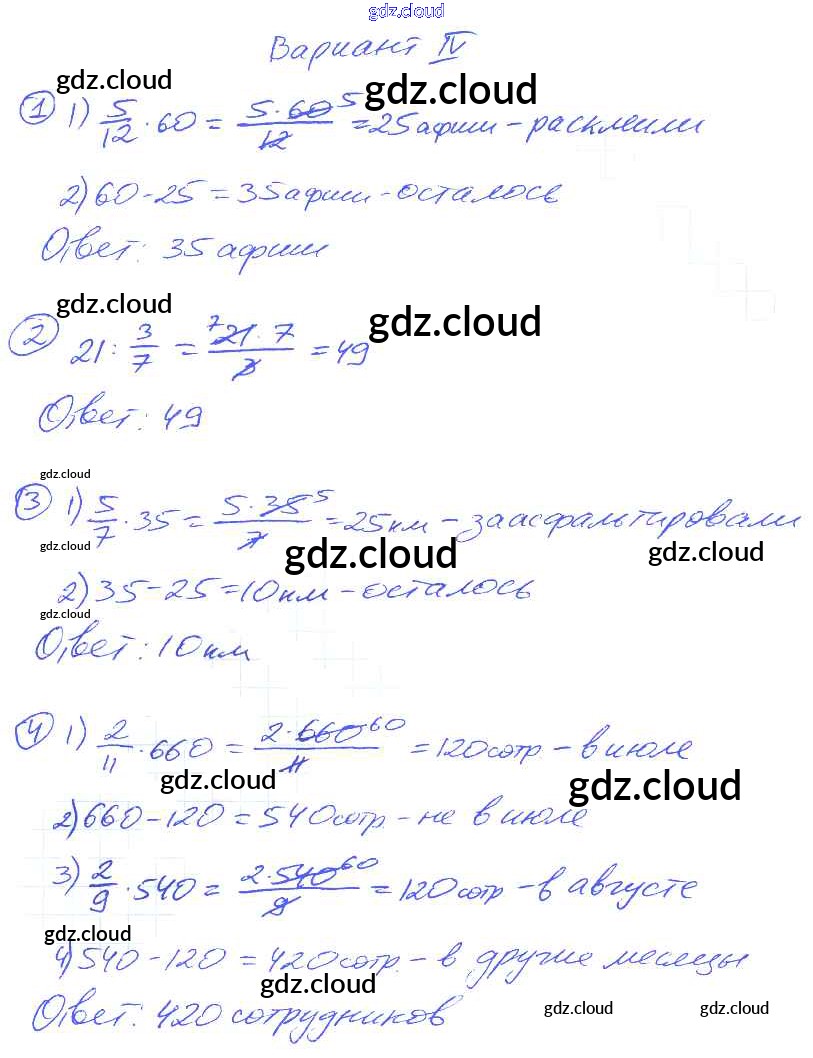 gdz.cloud
Вариант IV
gdz.cloud
gdz.cloud
① 1) 5/12 · 60 = 5 · 60 5 / 12 = 25 афиш - расклеили
2) 60 - 25 = 35 афиш - осталось
Ответ: 35 афиш
gdz.cloud
gdz.cloud
② 21 : 3/7 = 7 21 · 7 / 3 = 49
Ответ: 49
gdz.cloud
③ 1) 5/7 · 35 = 5 · 35 5 / 7 = 25 км - заасфальтировали
gdz.cloud
gdz.cloud
gdz.cloud
2) 35 - 25 = 10 км - осталось
gdz.cloud
Ответ: 10 км
④ 1) 2/11 · 660 = 2 · 660 60 / 11 = 120 сотр - в июле
gdz.cloud
gdz.cloud
2) 660 - 120 = 540 сотр. - не в июле
3) 2/9 · 540 = 2 · 540 60 / 9 = 120 сотр - в августе
gdz.cloud
4) 540 - 120 = 420 сотр. - в другие месяцы
gdz.cloud
Ответ: 420 сотрудников
gdz.cloud
gdz.cloud